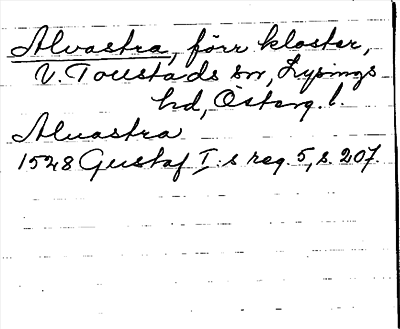 Alvastra, förr kloster,
V. Toustads sn, Lysings
hd, Österg. l.
Alvastra
1528 Gustaf I:s reg. 5, s. 207.